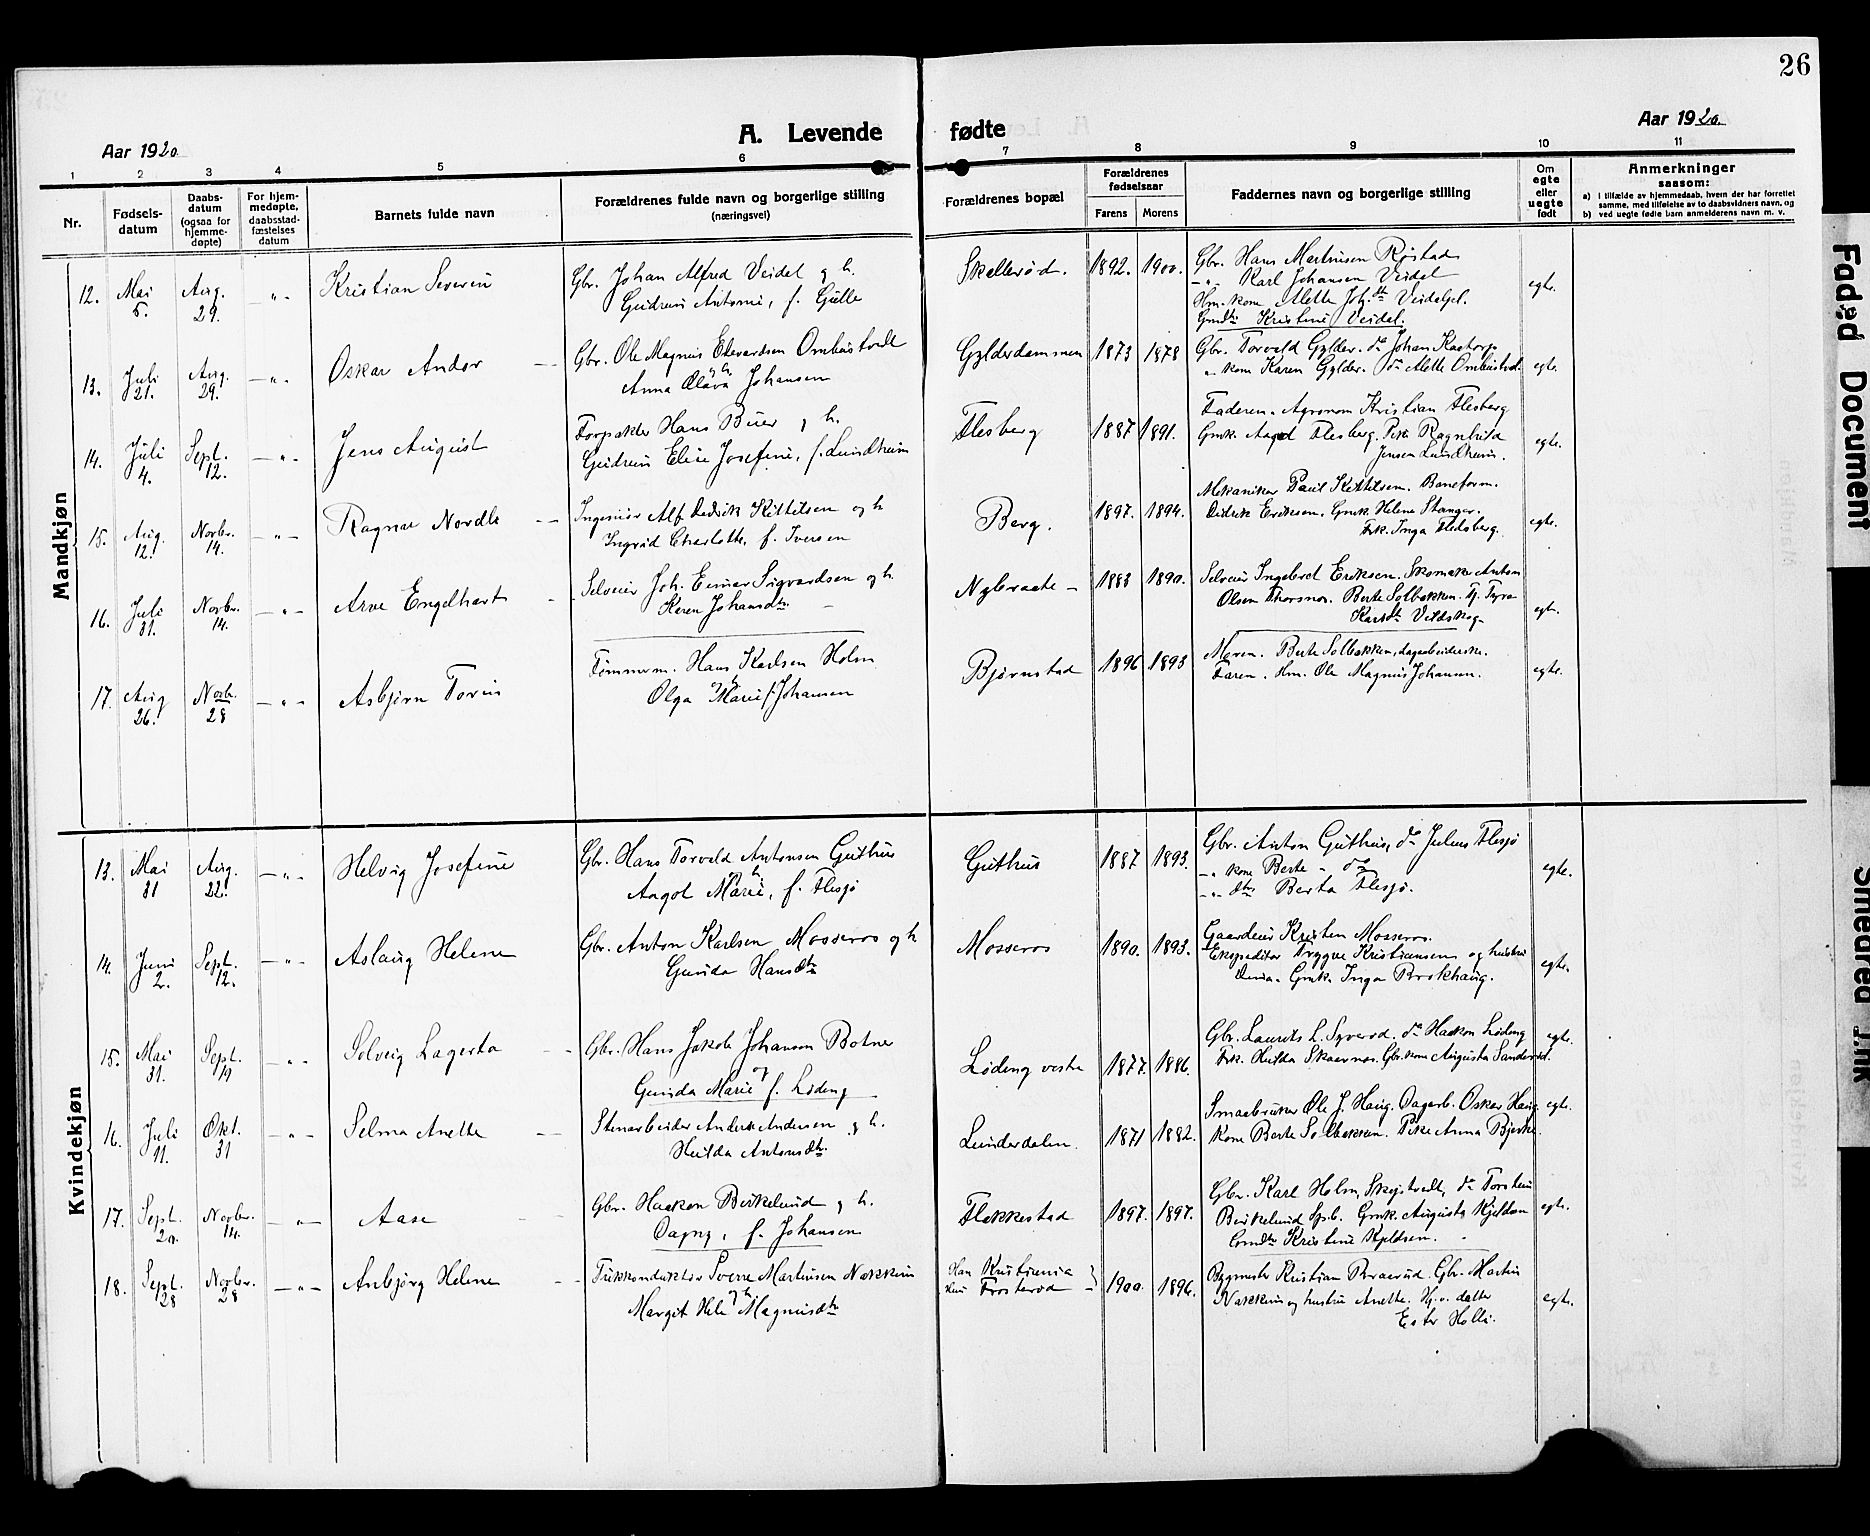 26
A. Levende fødte
Aar 1920.
Aar 1920.
1 2 3 4 5 6 7 8 9 10 11
Nr.
Fødsels-
datum
Daabs-
datum
(ogsaa for
hjemme-
døpte)
For hjem-
medøpte,
daabsstad-
fæstelses
datum
Barnets fulde navn
Forældrenes fulde navn og borgerlige stilling
(næringsvei)
Forældrenes bopæl
Forældrenes
fødselsaar
Farens Morens
Faddernes navn og borgerlige stilling
Om
egte
eller
uegte
født
Anmerkninger
saasom:
a) i tilfælde av hjemmedaab, hvem der har forrettet
samme, med tilføielse av to daabsvidners navn, og
b) ved uegte fødte barn anmelderens navn m. v.
Mandkjøn
12. Mai 5. Aug. 29. —"— Kristian Severin
Gbr. Johan Alfred Veidel og h.
Gudrun Antoni, f. Gulle
Skallerød. 1892. 1900.
Gbr. Hans Martinsen Røstad
—"— Karl Johansen Veidel
Hm. kone Alette Joh.dtr Veidelpl.
Gmdtr Kristine Veidel.
egte.
13. Juli 21. Aug. 29. —"— Oskar Andor
Gbr. Ole Magnus Edvardsen Ombustvedt
og h.
Anna Olava Johansen
Gylderdammen 1873 1878
Gbr. Torvald Gylder. do Johan Kastorp
" kone Karen Gylder. do Alette Ombustvedt.
egte.
14. Juli 4. Sept. 12. —"— Jens August
Forpakter Hans Buer og h.
Gudrun Elise Josefine, f. Lundheim
Flesberg 1887 1891.
Faderen. Agronom Kristian Flesberg
Gmk. Aagot Flesberg. Pike Ragnhild
Jensen Lundheim.
egte.
15. Aug. 12. Novbr. 14. —"— Ragnar Nordli
Ingeniør Alf Dedrik Kittilsen og h
Ingrid Charlotte, f. Iversen
Berg. 1897. 1894.
Mekaniker Paul Kittilsen. Baneform.
Didrik Eriksen. Gmk. Helene Stanger.
Frk. Inga Flesberg.
egte.
16. Juli 31. Novbr. 14. —"— Arve Engelhart
Selveier Joh. Einar Sigvardsen og h.
Karen Johansdtr
Nybraate — 1883 1890.
Selveier Ingebret Eriksen. Skomaker Anton
Olsen Thorsnes. Berte Solbakken. Tj. Tyra
Karlsdtr Vildskog
egte.
17. Aug 26. Novb. 28 —"— Asbjørn Torin
Tømmerm. Hans Karlsen Holm
og h
Olga Marie f. Johansen
Bjørnstad 1896 1893
Moren. Berte Solbakken, dagarbeiderske.
Faren. Hm. Ole Magnus Johansen.
egte.
Kvindekjøn
13. Mai 31 Aug. 22. —"— Helvig Josefine
Gbr. Hans Torvald Antonsen Guthus
og h.
Aagot Marie, f. Flesjø
Guthus 1887 1893.
Gbr. Anton Guthus, do Julius Flesjø
—"— kone Berte — do
—"— dtr Berta Flesjø.
egte.
14. Juni 2. Sept. 12. —"— Aslaug Helene
Gbr. Anton Karlsen Mosseros og h
Gunda Hansdtr
Mosseros 1890. 1893.
Gaardeier Kristen Mosseros.
Ekspeditør Trygve Kristiansen og hustru
Gmk. Inga Brokhaug.
egte.
15. Mai 31. Sept. 19 —"— Solveig Lagerta
Gbr. Hans Jakob Johansen Botner
og
Gunda Marie f. Lødeng
Lødeng vestre 1877. 1886.
Gbr. Laurits L. Syverød. do Haakon Lødeng
Frk. Hulda Skaarnes. Gbr. kone Augusta Sanderød.
egte.
16. Juli 11. Okt. 31 —"— Selma Anette
Stenarbeider Anders Andersen og h.
Hulda Antonsdtr.
Lunderdalen. 1871 1882.
Smaabruker Ole J. Haug. Dagarb. Oskar Haug
Kone Berte Solbakken. Pike Anna Bjerke.
egte.
17. Sept. 20. Novbr. 14. —"— Aase
Gbr. Haakon Birkelund og h.
Dagny, f. Johansen
Flakkestad 1897. 1897.
Gbr. Karl Holm, Skjstvedt, do Torstein
Birkelund Spb. Gmk. Augusta Kjeldsen
Gmdtr Kristine Kjeldsen.
egte.
18. Sept. 28 Novbr. 28 —"— Anbjørg Helene
Trikkonduktør Sverre Martinsen Nakkim
og h.
Margit Hele Magnusdtr
Han Kristiania
Hun Frosterød
1900. 1896.
Bygmester Kristian Braarud. Gbr. Martin
Nakkim og hustru Anette. Hj. v. datter
Ester Holli.
egte.
Faded Document
Smeared Ink